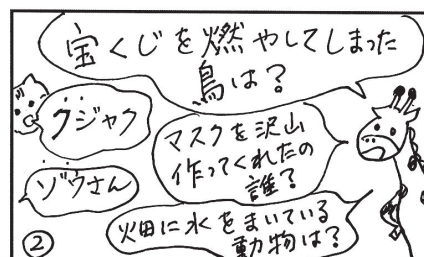 宝くじを燃やしてしまった
鳥は？
クジャク
マスクを沢山
作ってくれたの
誰？
ゾウさん
畑に水をまいている
動物は？
②